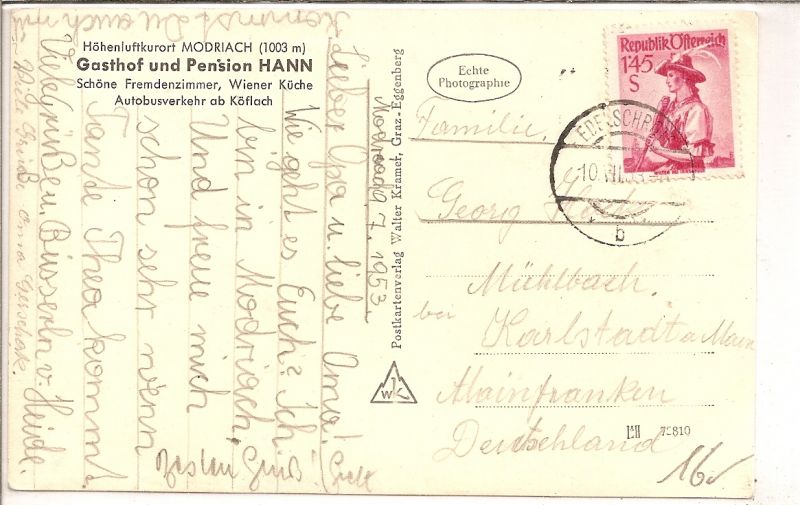 Höhenluftkurort MODRIACH (1003 m)
Gasthof und Pension HANN
Schöne Fremdenzimmer, Wiener Küche
Autobusverkehr ab Köflach
Modriach 7. 1953
Lieber Opa u. liebe Oma!
Wie geht es Euch? Ich
bin in Modriach
Und freue mich
schon sehr wenn
Tante Thea kommt
Viele Grüße u. Busserln v. Heide.
Viele Grüße
Kommst Du auch mit
Besten Gruß
Postkartenverlag Walter Kramer, Graz-Eggenberg
WK
Echte
Photographie
Republik Österreich
1'45
S
EDELSCHR
10.VII.53
b
Familie
Georg
Mühlbach
bei
Karlstadt a. Main
Mainfranken
Deutschland
75810
16